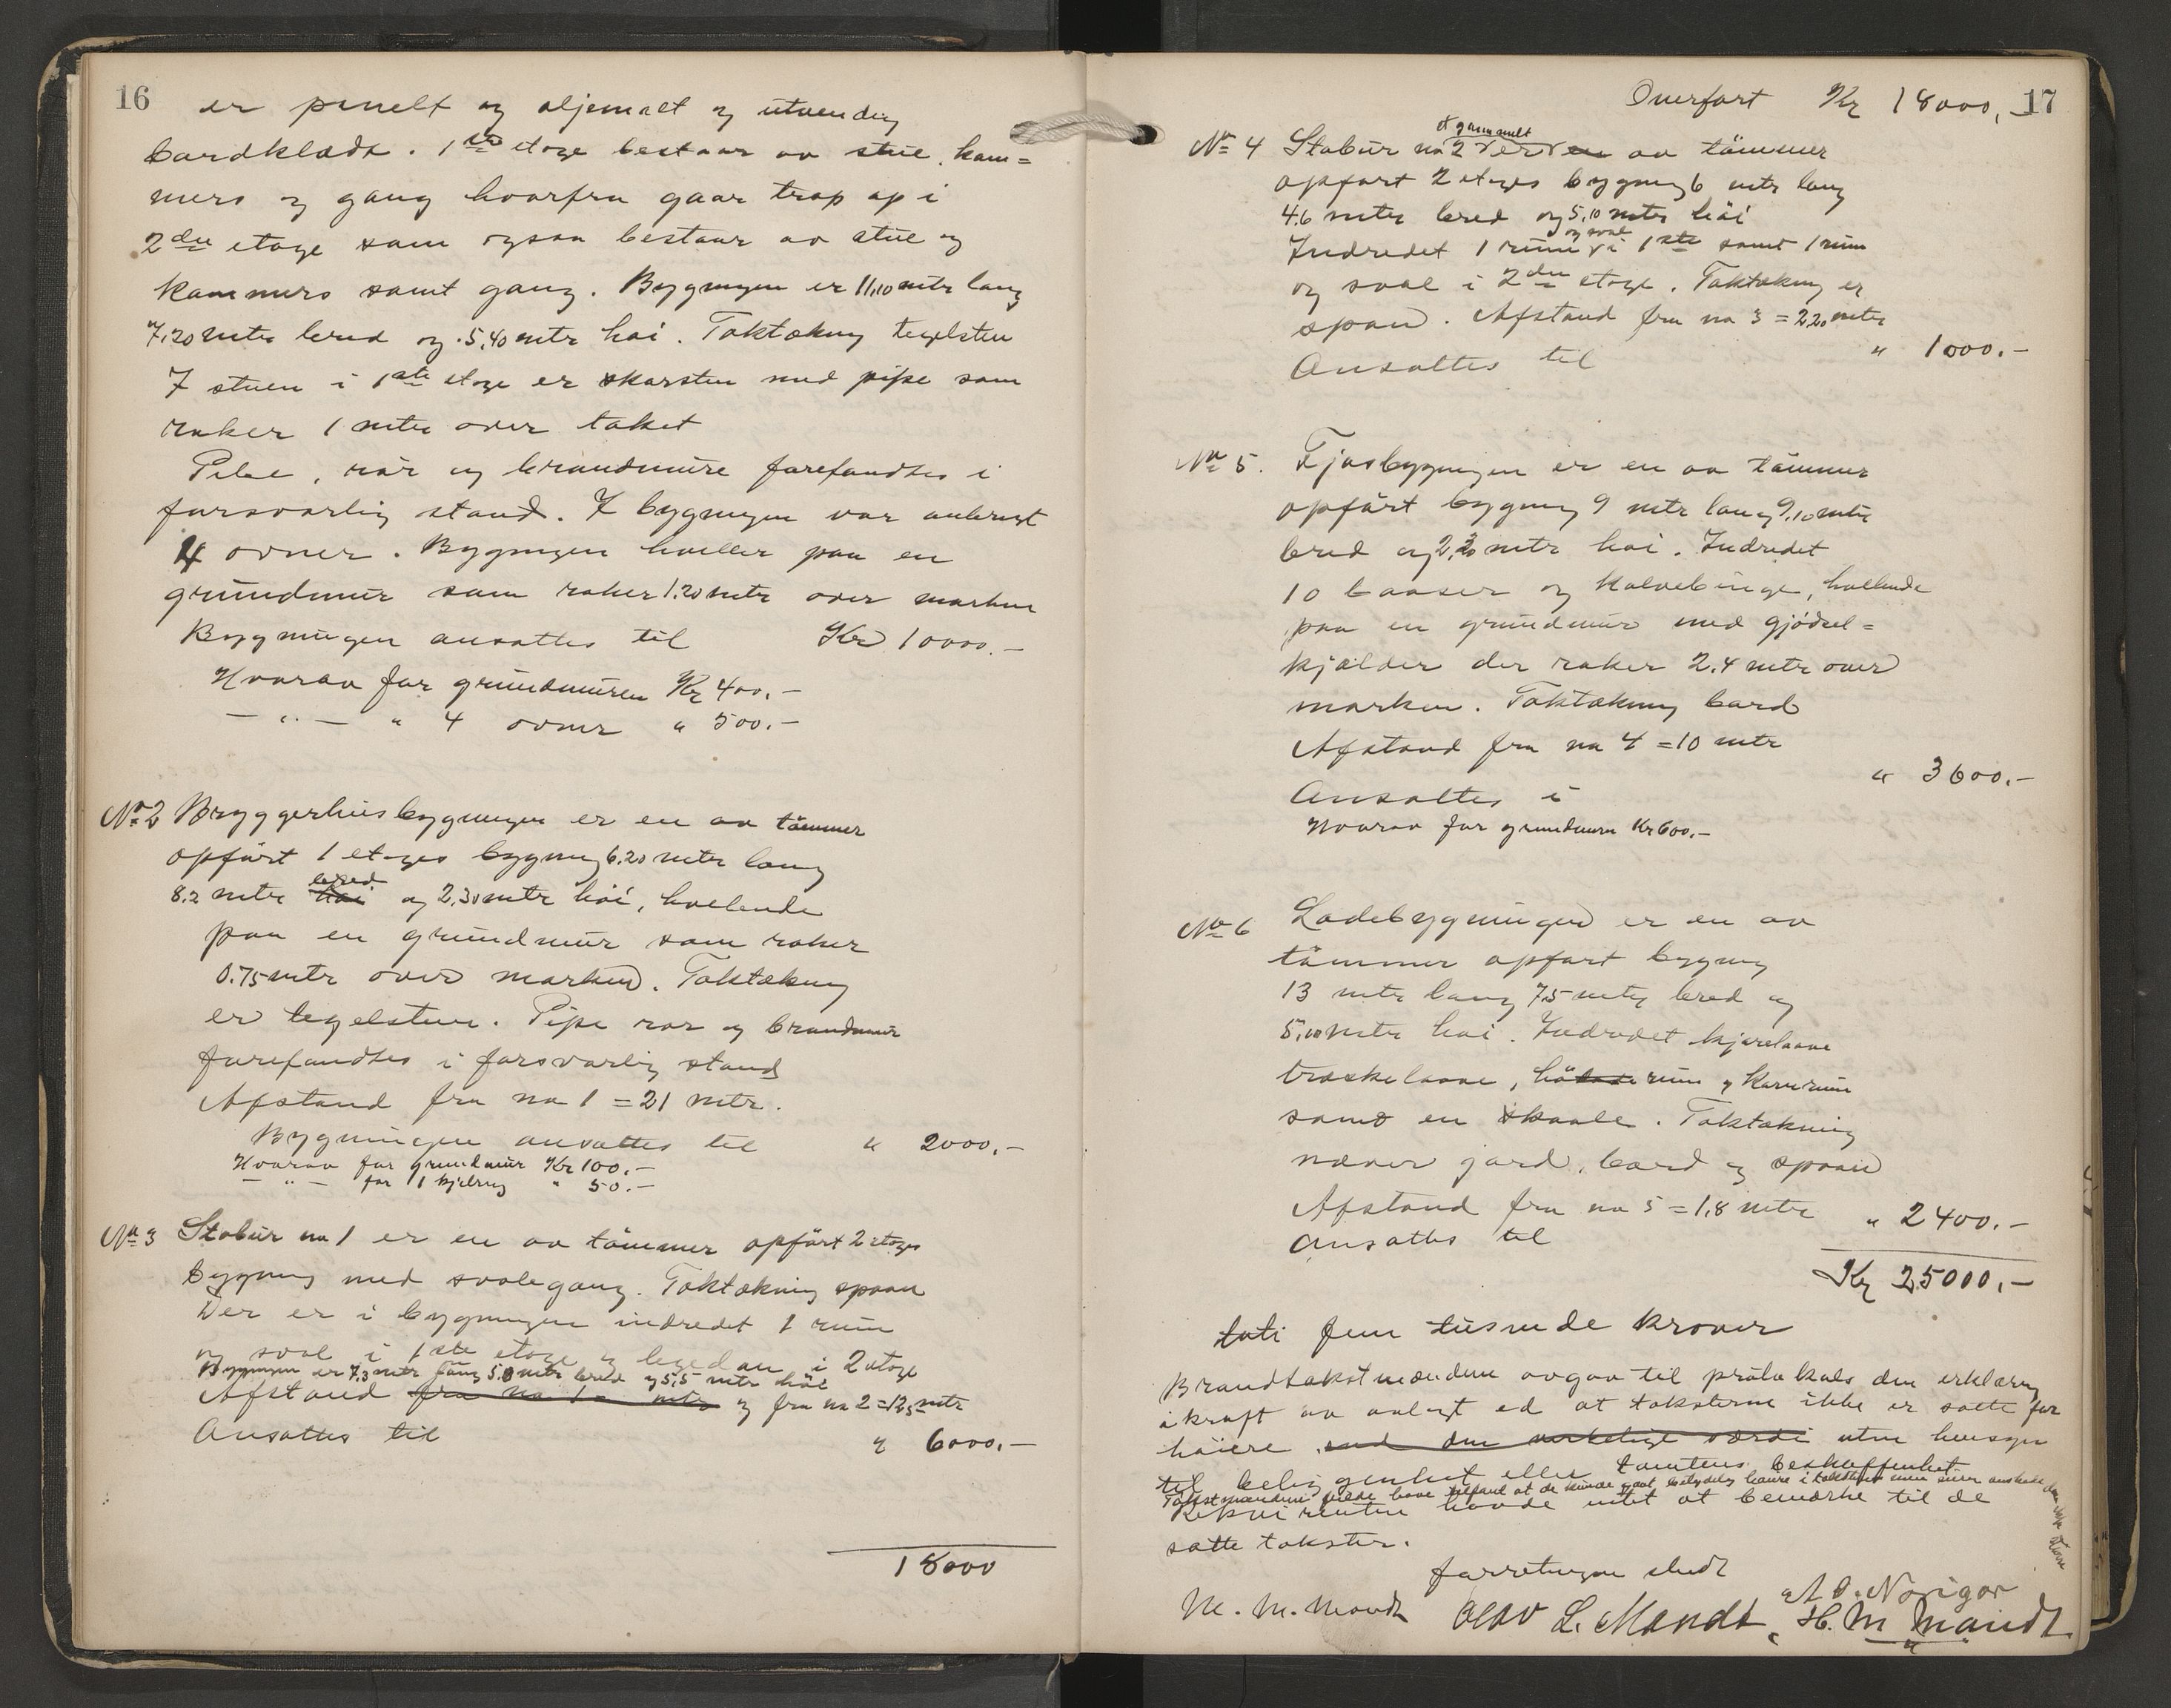 16
er panelt og oljemalt og utvendig
bordklædt. 1ste etage bestaar av stue, kam=
mers og gang hvorfra gaar trap op i
2den etage som ogsaa bestaar av stue og
kammers samt gang. Bygningen er 11,10 mtr lang
7,20 mtr bred og 5,40 mtr høi. Taktækning teglsten
I stuen i 1ste etage er skorsten med pipe som
raker 1 mtr over taket
Pibe, rør og brandmure forefandtes i
forsvarlig stand. I bygningen var anbragt
4 ovner. Bygningen hviler paa en
grundmur som raker 1.20 mtr over marken
Bygningen ansattes til Kr 10000.-
Hvorav for grundmuren Kr 400.-
— " — " 4 ovner " 500.-
No 2 Bryggerhusbygningen er en av tømmer
opført 1 etages bygning 6.20 mtr lang
8.2 mtr høi bred og 2,30 mtr høi, hvilende
paa en grundmur som raker
0.75 mtr over marken. Taktækning
er tegelsten. Pipe rør og brandmur
forefandtes i forsvarlig stand
Afstand fra no 1 = 21 mtr.
Bygningen ansattes til " 2000.-
Hvorav for grundmur Kr 100.-
— " — for 1 " 50.-
No 3 Stabur no 1 er en av tømmer opført 2 etages
bygning med svalegang. Taktækning spaan
Der er i bygningen indredet 1 rum
og sval i 1ste etage og i 2 etage
Bygningen er 7,3 mtr lang 5.8 mtr bred og 5,5 mtr høi
Afstand fra no 1 = mtr og fra no 2 = 12,5 mtr
Ansattes til " 6000.-
18000
17
Overført Kr 18000,-
No 4 Stabur no 2 et gammelt av tømmer
opført 2 etages bygning 6 mtr lang
4.6 mtr bred og 5,10 mtr høi
Indredet 1 rum og sval i 1ste samt 1 rum
og sval i 2den etage. Taktækning er
spaan. Afstand fra no 3 = 2,20 mtr
Ansattes til " 1000.-
No 5. Fjøsbygningen er en av tømmer
opført bygning 9 mtr lang 9,10 mtr
bred og 2,20 mtr høi. Indredet
10 baaser og kalvebinge, hvilende
paa en grundmur med gjødsel=
kjælder der raker 2.4 mtr over
marken. Taktækning bord
Afstand fra no 4 = 10 mtr
Ansattes i " 3600.-
Hvorav for grundmuren Kr 600.-
No 6 Ladebygningen er en av
tømmer opført bygning
13 mtr lang 7,5 mtr bred og
5,10 mtr høi. Indredet kjørelaave
træskelaave, hø rum og kornrum
samt en skaale. Taktækning
næver jord, bord og spaan
Afstand fra no 5 = 1,8 mtr " 2400.-
Ansattes til
Kr 25000,-
tuti fem tusende kroner
Brandtakstmændene avgav til protokols den erklæring
i kraft av avlagt ed at taksterne ikke er satte for
høiere end den virkelige værdi uten hensyn
til beliggenhet eller tomtens beskaffenhet
Takstmændene vilde have tilføiet at de kunde gaat betydelig høiere i taksten men eieren ønskede
Rekvirenten havde intet at bemærke til de
satte takster.
forretningen slut
M. M. Mandt Olav L. Mandt, H. M. Mandt
A O. Norigar